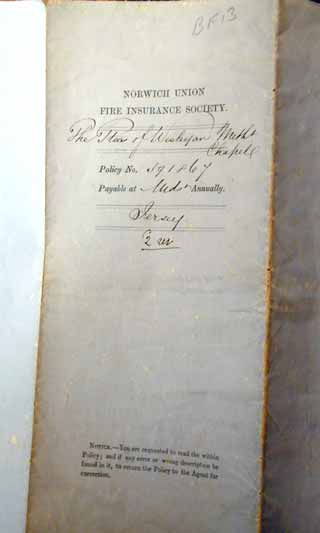 BF13
NORWICH UNION
FIRE INSURANCE SOCIETY.
The of Wesleyan Meth.
Chapel
Policy No. 391867
Payable at Mids.r Annually.
Jersey
NOTICE.—You are requested to read the within
Policy; and if any error or wrong description be
found in it, to return the Policy to the Agent for
correction.